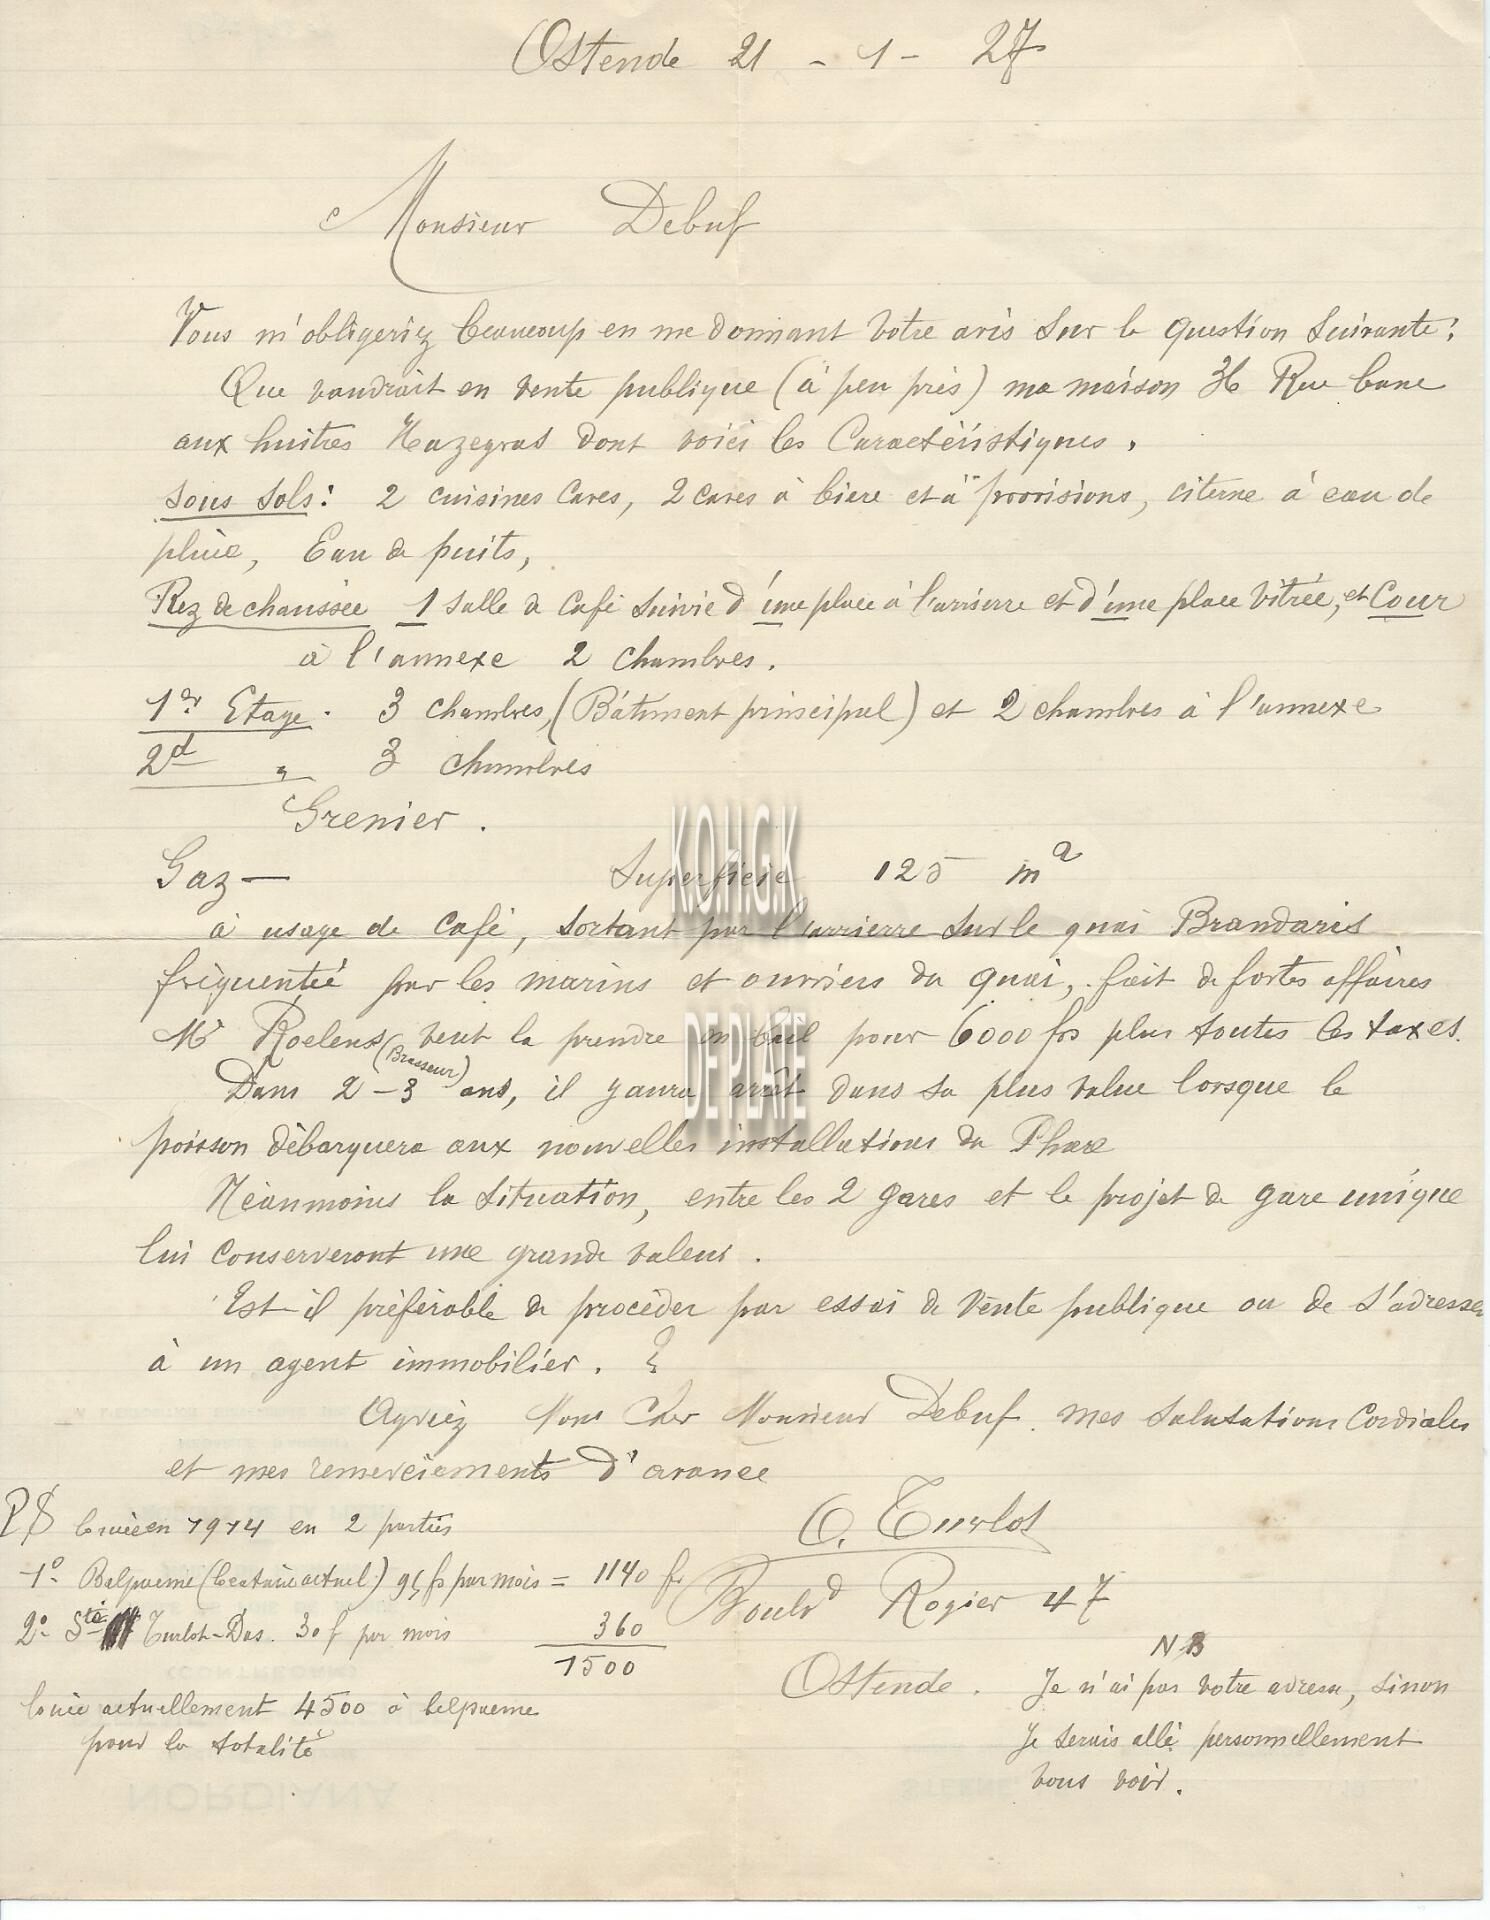 Ostende 21 - 1 - 27
Monsieur Debuf
Vous m'obligeriez beaucoup en me donnant votre avis sur la question suivante :
Que vaudrait en vente publique (à peu près) ma maison 36 Rue banc
aux huitres Hazegras dont voici les Caractéristiques.
Sous sols : 2 cuisines caves, 2 caves à bière et à provisions, citerne à eau de
pluie, Eau de puits,
Rez de chaussée 1 salle de café suivie d'une place à l'arrierre et d'une place vitrée, et Cour
à l'annexe 2 chambres.
1er Etage. 3 chambres, (Bâtiment principal) et 2 chambres à l'annexe
2d " 3 chambres
Grenier.
Gaz — Superficie 125 m2
à usage de café, sortant par l'arrierre sur le quai Brandaris
fréquenté par les marins et ouvriers du quai, fait de fortes affaires
Mr Roelens (Brasseur) veut la prendre en bail pour 6000 frs plus toutes les taxes.
Dans 2 - 3 ans, il y aura arrêt dans sa plus value lorsque le
poisson débarquera aux nouvelles installations du Phare
Néanmoins la situation, entre les 2 gares et le projet de gare unique
lui conserveront une grande valeur.
Est-il préférable de procéder par essai de vente publique ou de s'adresser
à un agent immobilier. ?
Agréez Mon Cher Monsieur Debuf. mes salutations Cordiales
et mes remerciements d'avance
C. Turlot
Boulvd Rogier 47
Ostende.
PS louée en 1914 en 2 parties
1o Belpaeme (locataire actuel) 95 fs par mois = 1140 fr
2o Sté Turlot-Das. 30 f par mois 360
1500
louée actuellement 4500 à belpaeme
pour la totalité
NB
Je n'ai pas votre adresse, sinon
Je serais allé personnellement
vous voir.
K.O.H.G.K.
DE PLATE